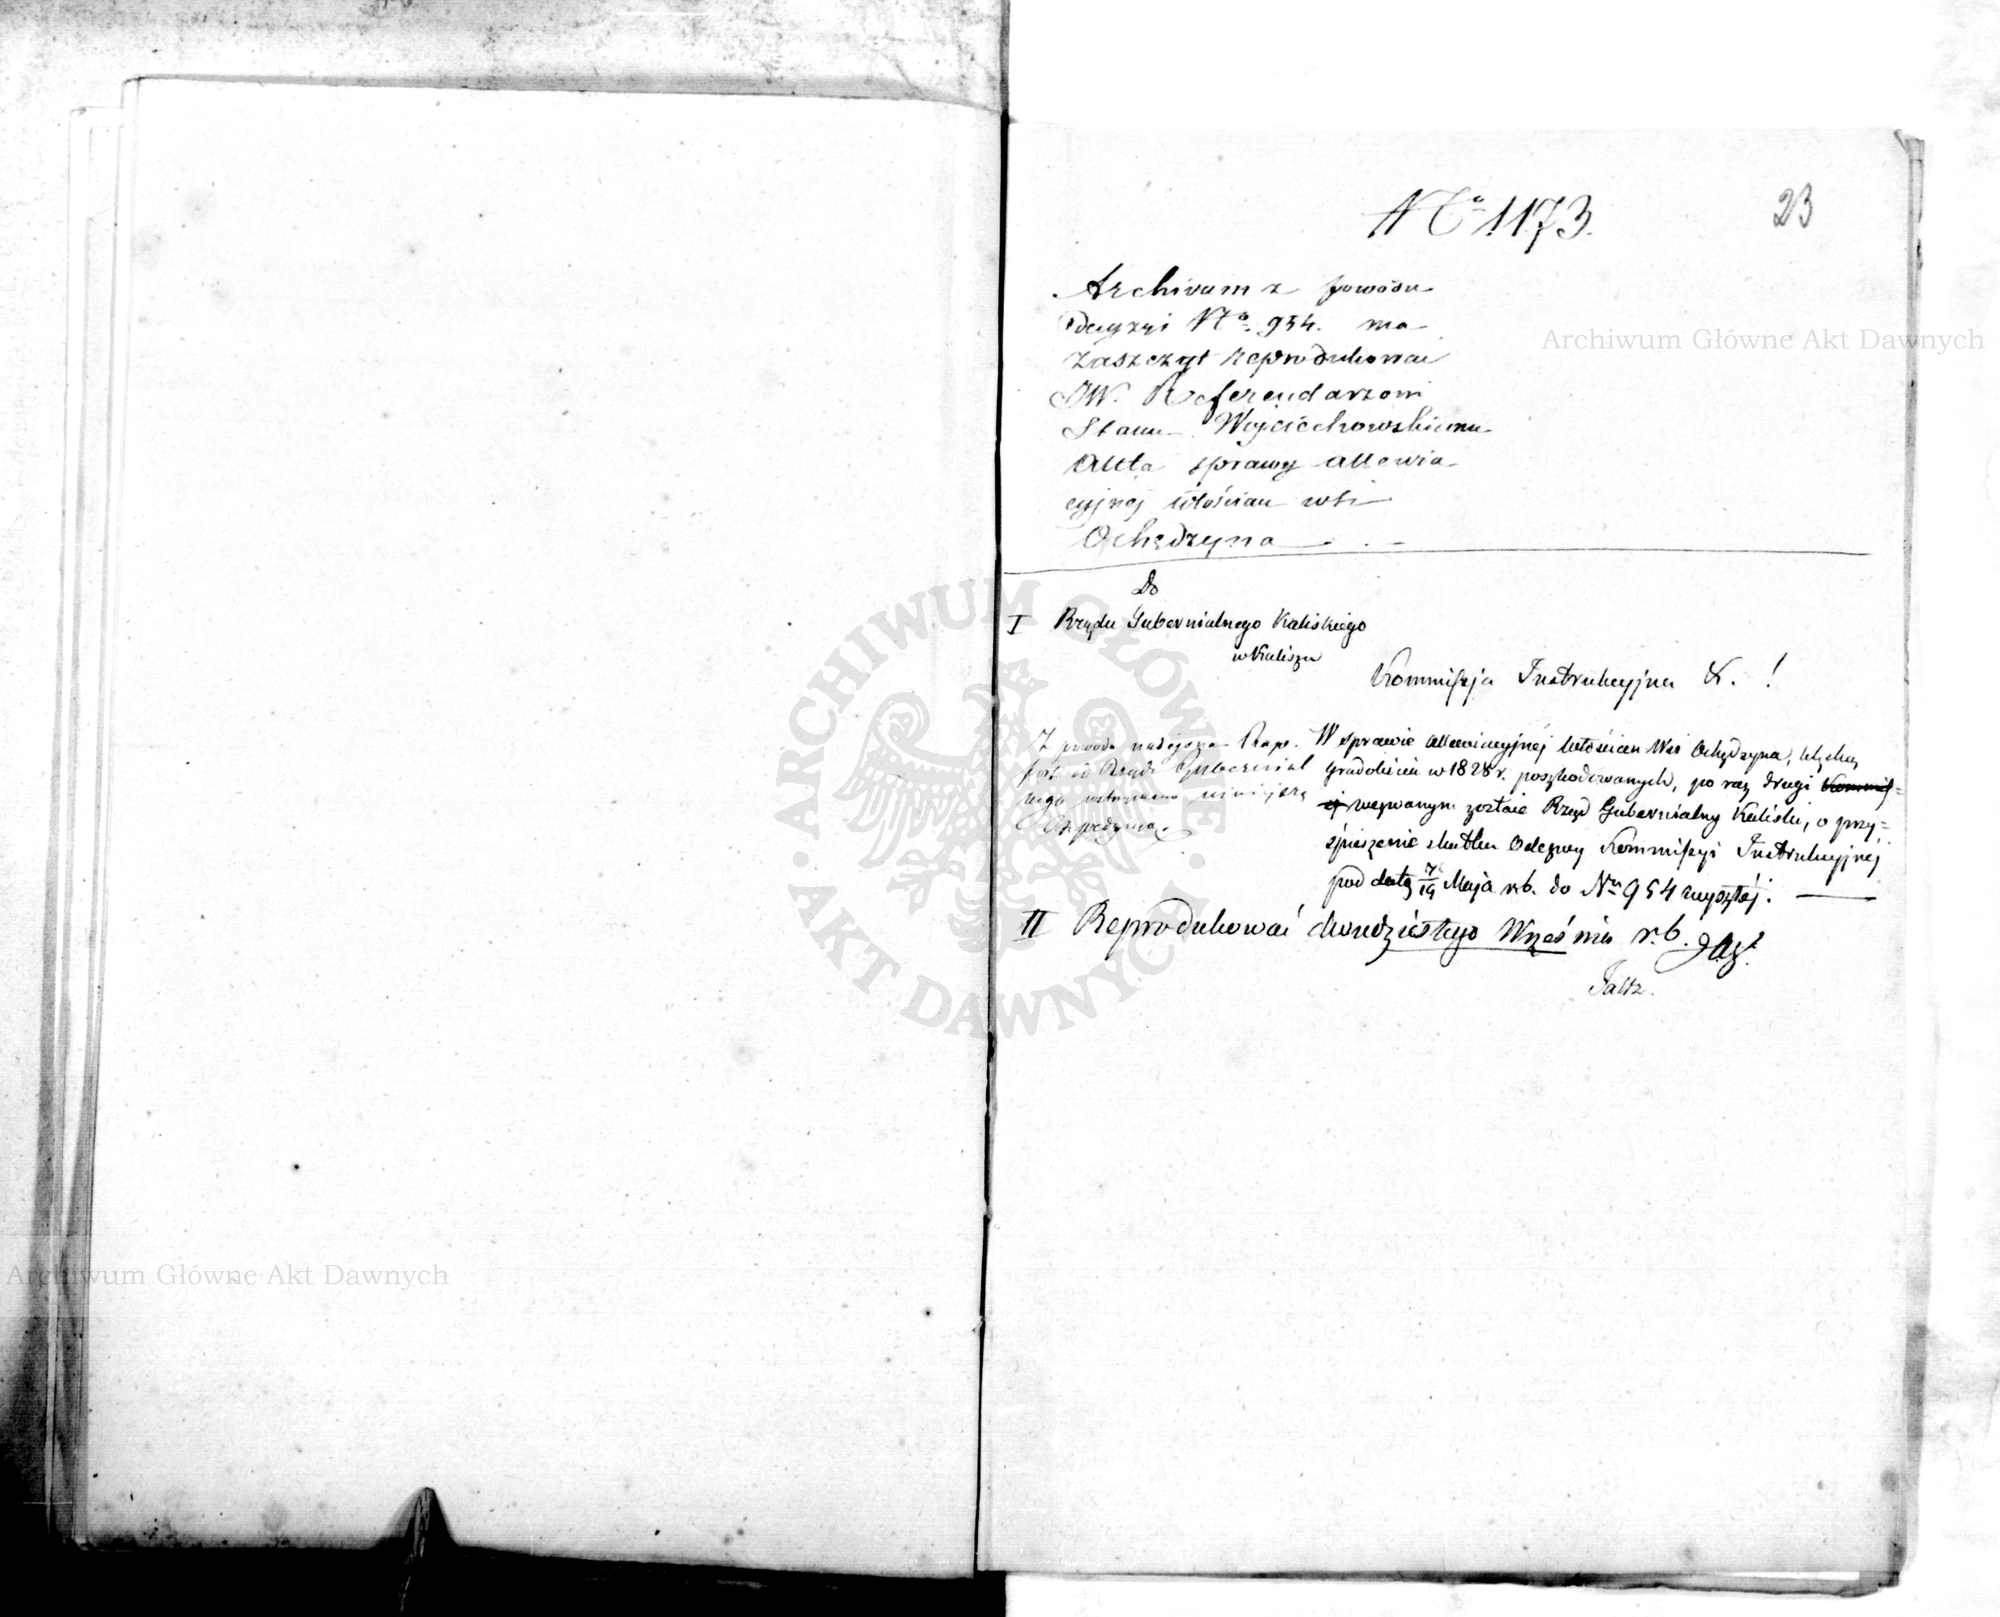 23
No 1173.
Archivum z powodu
Decyzyi No 954. ma
zaszczyt reprodukować
JW. Referendarzowi
Stanu Wojciechowskiemu
Akta sprawy allewia-
cyjnej włościan wsi
Ochędzyna
Do
I Rządu Gubernialnego Kaliskiego
w Kaliszu
Kommissja Instrukcyjna &. !
Z powodu nadejścia Rapo-
rtu od Rządu Gubernial
nego wstrzymano niniejszą
Expedycyą.
W sprawie Allewiacyjnej włościan Wsi Ochędzyna, klęską
gradobicia w 1828 r. poszkodowanych, po raz drugi Kommis=
ji wezwanym zostaie Rząd Gubernialny Kaliski, o przy=
śpieszenie skutku Odezwy Kommissyi Instrukcyjnej
pod datą 7/19 Maja r.b. do Nru 954 wyszłej.
II Reprodukować dwudziestego Września r.b.
Faltz.
Archiwum Główne Akt Dawnych
ARCHIWUM GŁÓWNE AKT DAWNYCH
Archiwum Główne Akt Dawnych